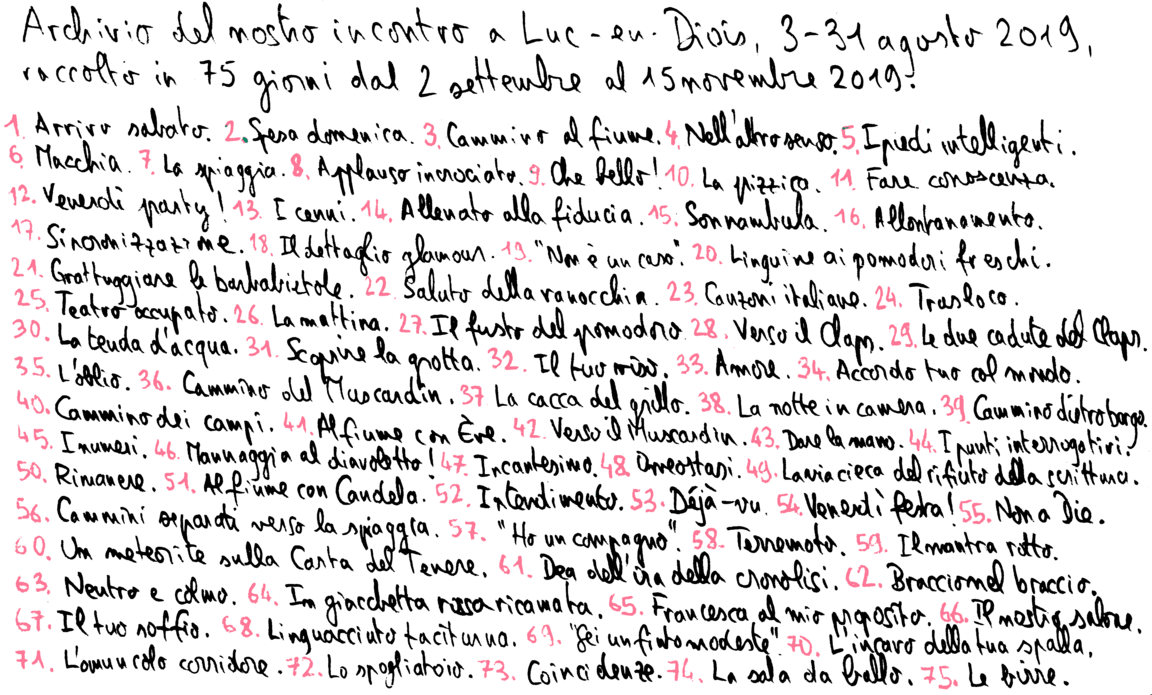 Archivio del nostro incontro a Luc-en-Diois, 3-31 agosto 2019,
raccolto in 75 giorni dal 2 settembre al 15 novembre 2019:
1. Arrivo sabato. 2. Spesa domenica. 3. Cammino al fiume. 4. Nell'altro senso. 5. I piedi intelligenti.
6. Macchia. 7. La spiaggia. 8. Applauso incrociato. 9. Che bello! 10. La pizzica. 11. Fare conoscenza.
12. Venerdì party! 13. I cenni. 14. Allenato alla fiducia. 15. Sonnambula. 16. Allontanamento.
17. Sincronizzazione. 18. Il dettaglio glamour. 19. "Non è un caso". 20. Linguine ai pomodori freschi.
21. Grattuggiare le barbabietole. 22. Saluto della ranocchia. 23. Canzoni italiane. 24. Trasloco.
25. Teatro occupato. 26. La mattina. 27. Il fusto del pomodoro 28. Verso il Claps. 29. Le due cadute del Claps.
30. La tenda d'acqua. 31. Scoprire la grotta. 32. Il tuo riso. 33. Amore. 34. Accordo tuo col mondo.
35. L'oblio. 36. Cammino del Muscardin. 37 La cacca del grillo. 38. La notte in camera. 39. Cammino dietro borgo.
40. Cammino dei campi. 41. Al fiume con Ève. 42. Verso il Muscardin. 43. Dare la mano. 44. I punti interrogativi.
45. I numeri. 46. Mannaggia al diavoletto! 47. Incantesimo. 48. Omeostasi. 49. La via cieca del rifiuto della scrittura.
50. Rimanere. 51. Al fiume con Candela. 52. Intendimento. 53. Déjà-vu. 54. Venerdì festa! 55. Non a Die.
56. Cammini separati verso la spiaggia. 57. "Ho un compagno". 58. Terremoto. 59. Il mantra rotto.
60. Un meteorite sulla Costa del Tenere. 61. Dea dell'ira della cronolisi. 62. Braccio nel braccio.
63. Neutro e colmo. 64. In giacchetta rossa ricamata. 65. Francesca al mio proposito. 66. Il nostro salone.
67. Il tuo soffio. 68. Linguacciuto taciturna. 69. "Sei un finto modesto". 70. L'incavo della tua spalla.
71. L'omuncolo corridore. 72. Lo spogliatoio. 73. Coincidenze. 74. La sala da ballo. 75. Le birre.